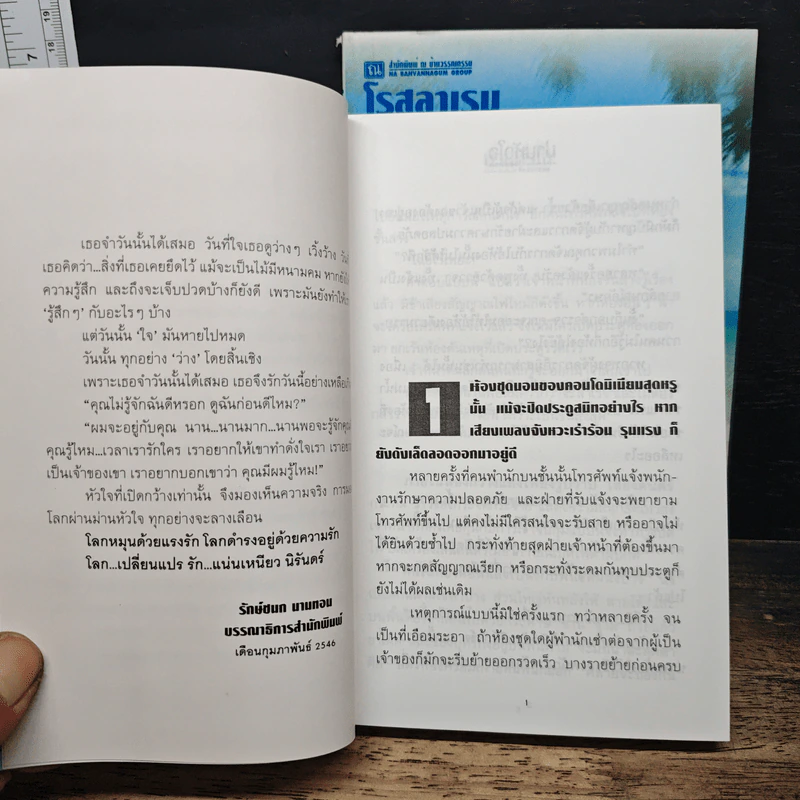 7
18
19
ณ
สำนักพิมพ์ ณ บ้านวรรณกรรม
NA BANVANNAGUM GROUP
โรสลาเรน
เธอจำวันนั้นได้เสมอ วันที่ใจเธอดูว่างๆ เวิ้งว้าง
เธอคิดว่า...สิ่งที่เธอเคยยึดไว้ แม้จะเป็นไม้มีหนามคม
ความรู้สึก และถึงจะเจ็บปวดบ้างก็ยังดี เพราะมันยังทำให้
‘รู้สึกๆ’ กับอะไรๆ บ้าง
แต่วันนั้น ‘ใจ’ มันหายไปหมด
วันนั้น ทุกอย่าง ‘ว่าง’ โดยสิ้นเชิง
เพราะเธอจำวันนั้นได้เสมอ เธอจึงรักวันนี้อย่างเหลือ
“คุณไม่รู้จักฉันดีหรอก ดูฉันก่อนดีไหม?”
“ผมจะอยู่กับคุณ นาน...นานมาก...นานพอจะรู้จักคุณ
คุณรู้ไหม...เวลาเรารักใคร เราอยากให้เขาทำดั่งใจเรา
เป็นเจ้าของเขา เราอยากบอกเขาว่า คุณมีผมรู้ไหม!”
หัวใจที่เปิดกว้างเท่านั้น จึงมองเห็นความจริง
โลกผ่านม่านหัวใจ ทุกอย่างจะลางเลือน
โลกหมุนด้วยแรงรัก โลกดำรงอยู่ด้วยความรัก
โลก...เปลี่ยนแปร รัก...แน่นเหนียว นิรันดร์
รักษ์ชนก นามทอน
บรรณาธิการสำนักพิมพ์
เดือนกุมภาพันธ์ 2546
1
ห้องชุดนอนของคอนโดมิเนียมสุดหรู
นั้น แม้จะปิดประตูสนิทอย่างไร หาก
เสียงเพลงจังหวะเร่าร้อน รุนแรง ก็
ยังดังเล็ดลอดออกมาอยู่ดี
หลายครั้งที่คนพำนักบนชั้นนั้นโทรศัพท์แจ้งพนัก-
งานรักษาความปลอดภัย และฝ่ายที่รับแจ้งจะพยายาม
โทรศัพท์ขึ้นไป แต่คงไม่มีใครสนใจจะรับสาย หรืออาจไม่
ได้ยินด้วยซ้ำไป กระทั่งท้ายสุดฝ่ายเจ้าหน้าที่ต้องขึ้นมา
หากจะกดสัญญาณเรียก หรือกระทั่งระดมกันทุบประตูก็
ยังไม่ได้ผลเช่นเดิม
เหตุการณ์แบบนี้มิใช่ครั้งแรก ทว่าหลายครั้ง จน
เป็นที่เอือมระอา ถ้าห้องชุดใดผู้พำนักเช่าต่อจากผู้เป็น
เจ้าของก็มักจะรีบย้ายออกรวดเร็ว บางรายย้ายก่อนครบ
1